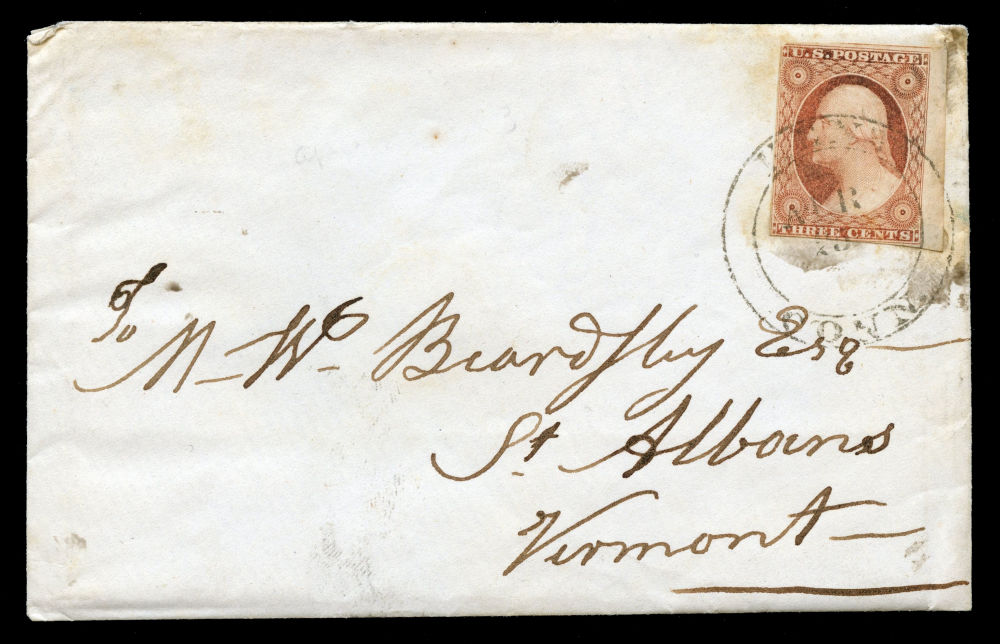 U.S. POSTAGE
THREE CENTS
APR
CONN.
To
M. W. Beardsley Esq
St. Albans
Vermont